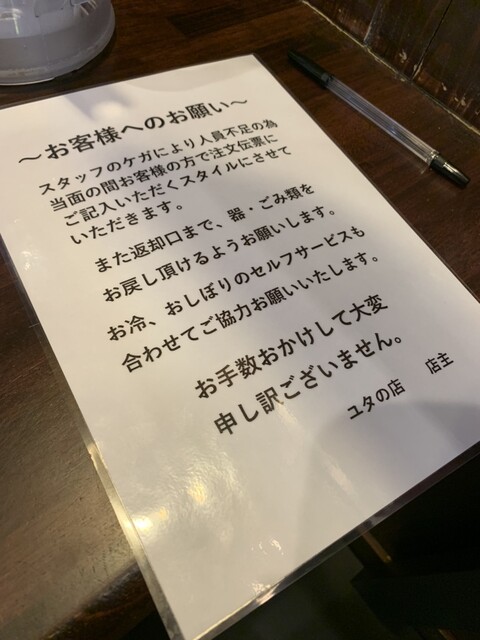 ～お客様へのお願い～
スタッフのケガにより人員不足の為
当面の間お客様の方で注文伝票に
ご記入いただくスタイルにさせて
いただきます。
また返却口まで、器・ごみ類を
お戻し頂けるようお願いします。
お冷、おしぼりのセルフサービスも
合わせてご協力お願いいたします。
お手数おかけして大変
申し訳ございません。
ユタの店　店主